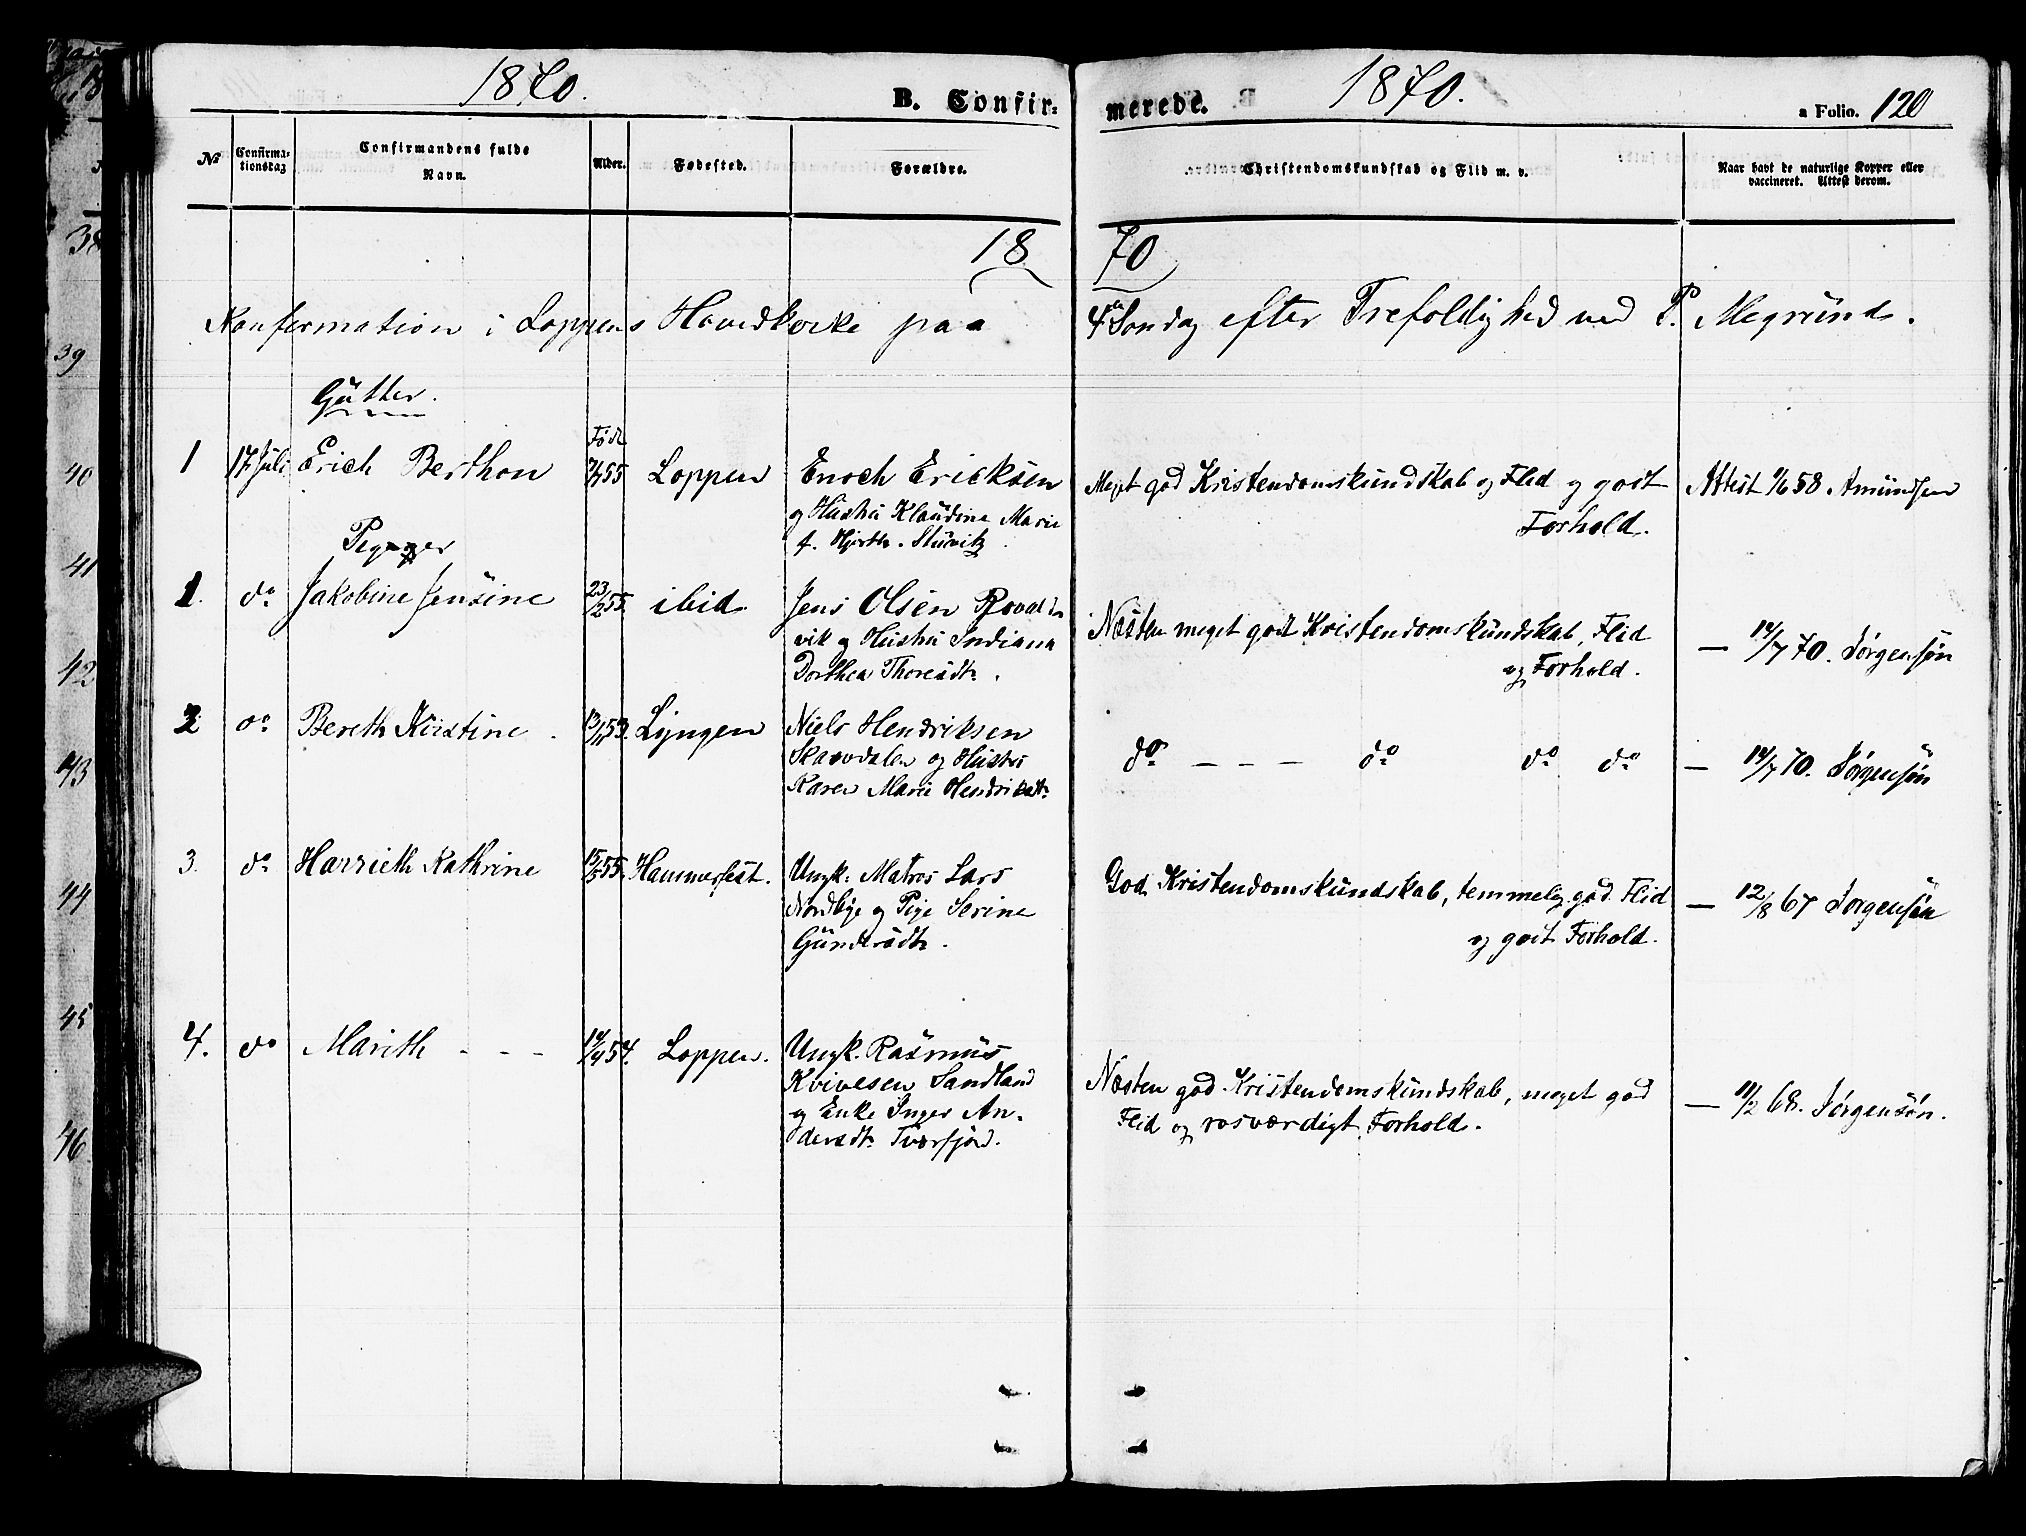 1870.
B. Confir-
merede.
1870.
a Folio. 120
No
Confirma-
tionsdag
Confirmandens fulde
Navn.
Alder.
Fødested.
Forældre.
Christendomskundskab og Flid m. v.
Naar havt de naturlige Kopper eller
vaccineret. Attest derom.
18 70
Konfirmation i Loppens Hovedkirke paa 4de Søndag efter Trefoldighed ved P.
Gutter.
Født
1 17 Juli Erich Berthon 55 Loppen Enoch Ericksen
og Hustru Klaudine Marie
f. Hjorth. Stuvik
Meget god Kristendomskundskab og Flid og godt
Forhold.
Attest 58 Amundsen
Piger
1. do Jakobine Jensine 23/2 55. ibid. Jens Olsen
vik og Hustru Indiana
Dorthea Thoresdtr.
Næsten meget godt Kristendomskundskab, Flid
og Forhold.
— 14/7 70. Jørgensøn
2 do Bereth Kristine 13/11 53. Lyngen Niels Hendriksen
Skarvdalen og Hustru
Karen Marie Hendriksdtr
do — — — do do do — 14/7 70. Jørgensøn
3. do Harrieth Kathrine 15/5 55. Hammerfest. Ungk. Matros Lars
Nordbye og Pige Serine
Gundersdtr.
God Kristendomskundskab, temmelig god Flid
og godt Forhold.
— 12/8 67 Jørgensøn
4. do Marith - - - 54. Loppen. Ungk. Rasmus
Kvivesen Sandland
og Enke Inger An-
dersdtr. Tverfjord.
Næsten god Kristendomskundskab, meget god
Flid og rosværdigt Forhold.
— 11/2 68. Jørgensøn.
38
39
40
41
42
43
44
45
46